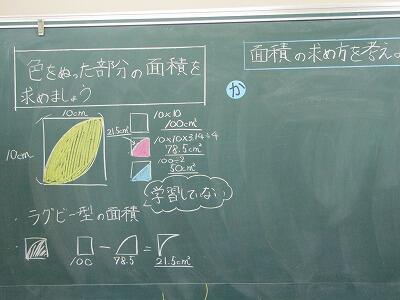 色をぬった部分の面積を
求めましょう
面積の求め方を考えよ
か
10cm
10cm
21.5cm²
10×10
100cm²
10×10×3.14÷4
78.5cm²
100÷2
50cm²
学習していない
・ラグビー型の面積
・
－
＝
100
78.5
21.5cm²